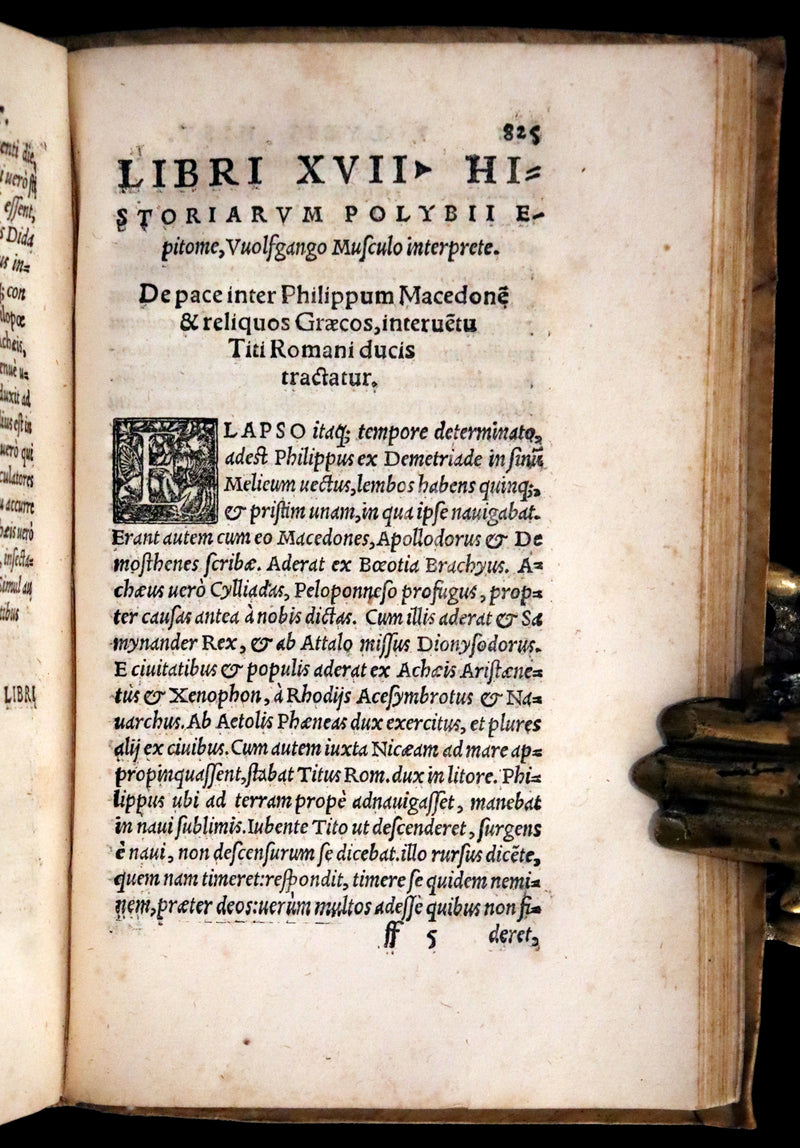 825
LIBRI XVII. HI=
STORIARVM POLYBII E-
pitome, Vuolfgango Muſculo interprete.
De pace inter Philippum Macedonẽ
& reliquos Græcos, interuẽtu
Titi Romani ducis
tractatur.
ELAPSO itaq; tempore determinato,
adeſt Philippus ex Demetriade in ſinũ
Melieum uectus, lembos habens quinq;,
& priſtim unam, in qua ipſe nauigabat.
Erant autem cum eo Macedones, Apollodorus & De
moſthenes ſcribæ. Aderat ex Bœotia Brachyus. A=
chæus uerò Cylliadas, Peloponneſo profugus, prop=
ter cauſas antea à nobis dictas. Cum illis aderat & Sa
mynander Rex, & ab Attalo miſſus Dionyſodorus.
E ciuitatibus & populis aderat ex Achæis Ariſtæne=
tus & Xenophon, à Rhodijs Aceſymbrotus & Na=
uarchus. Ab Aetolis Phæneas dux exercitus, et plures
alij ex ciuibus. Cum autem iuxta Nicæam ad mare ap=
propinquaſſent, ſtabat Titus Rom. dux in litore. Phi=
lippus ubi ad terram propè adnauigaſſet, manebat
in naui ſublimis. Iubente Tito ut deſcenderet, ſurgens
è naui, non deſcenſurum ſe dicebat. illo rurſus dicẽte,
quem nam timeret: reſpondit, timere ſe quidem nemi=
nem, præter deos: uerùm multos adeſſe quibus non fi=
ff 5 deret,
LIBRI